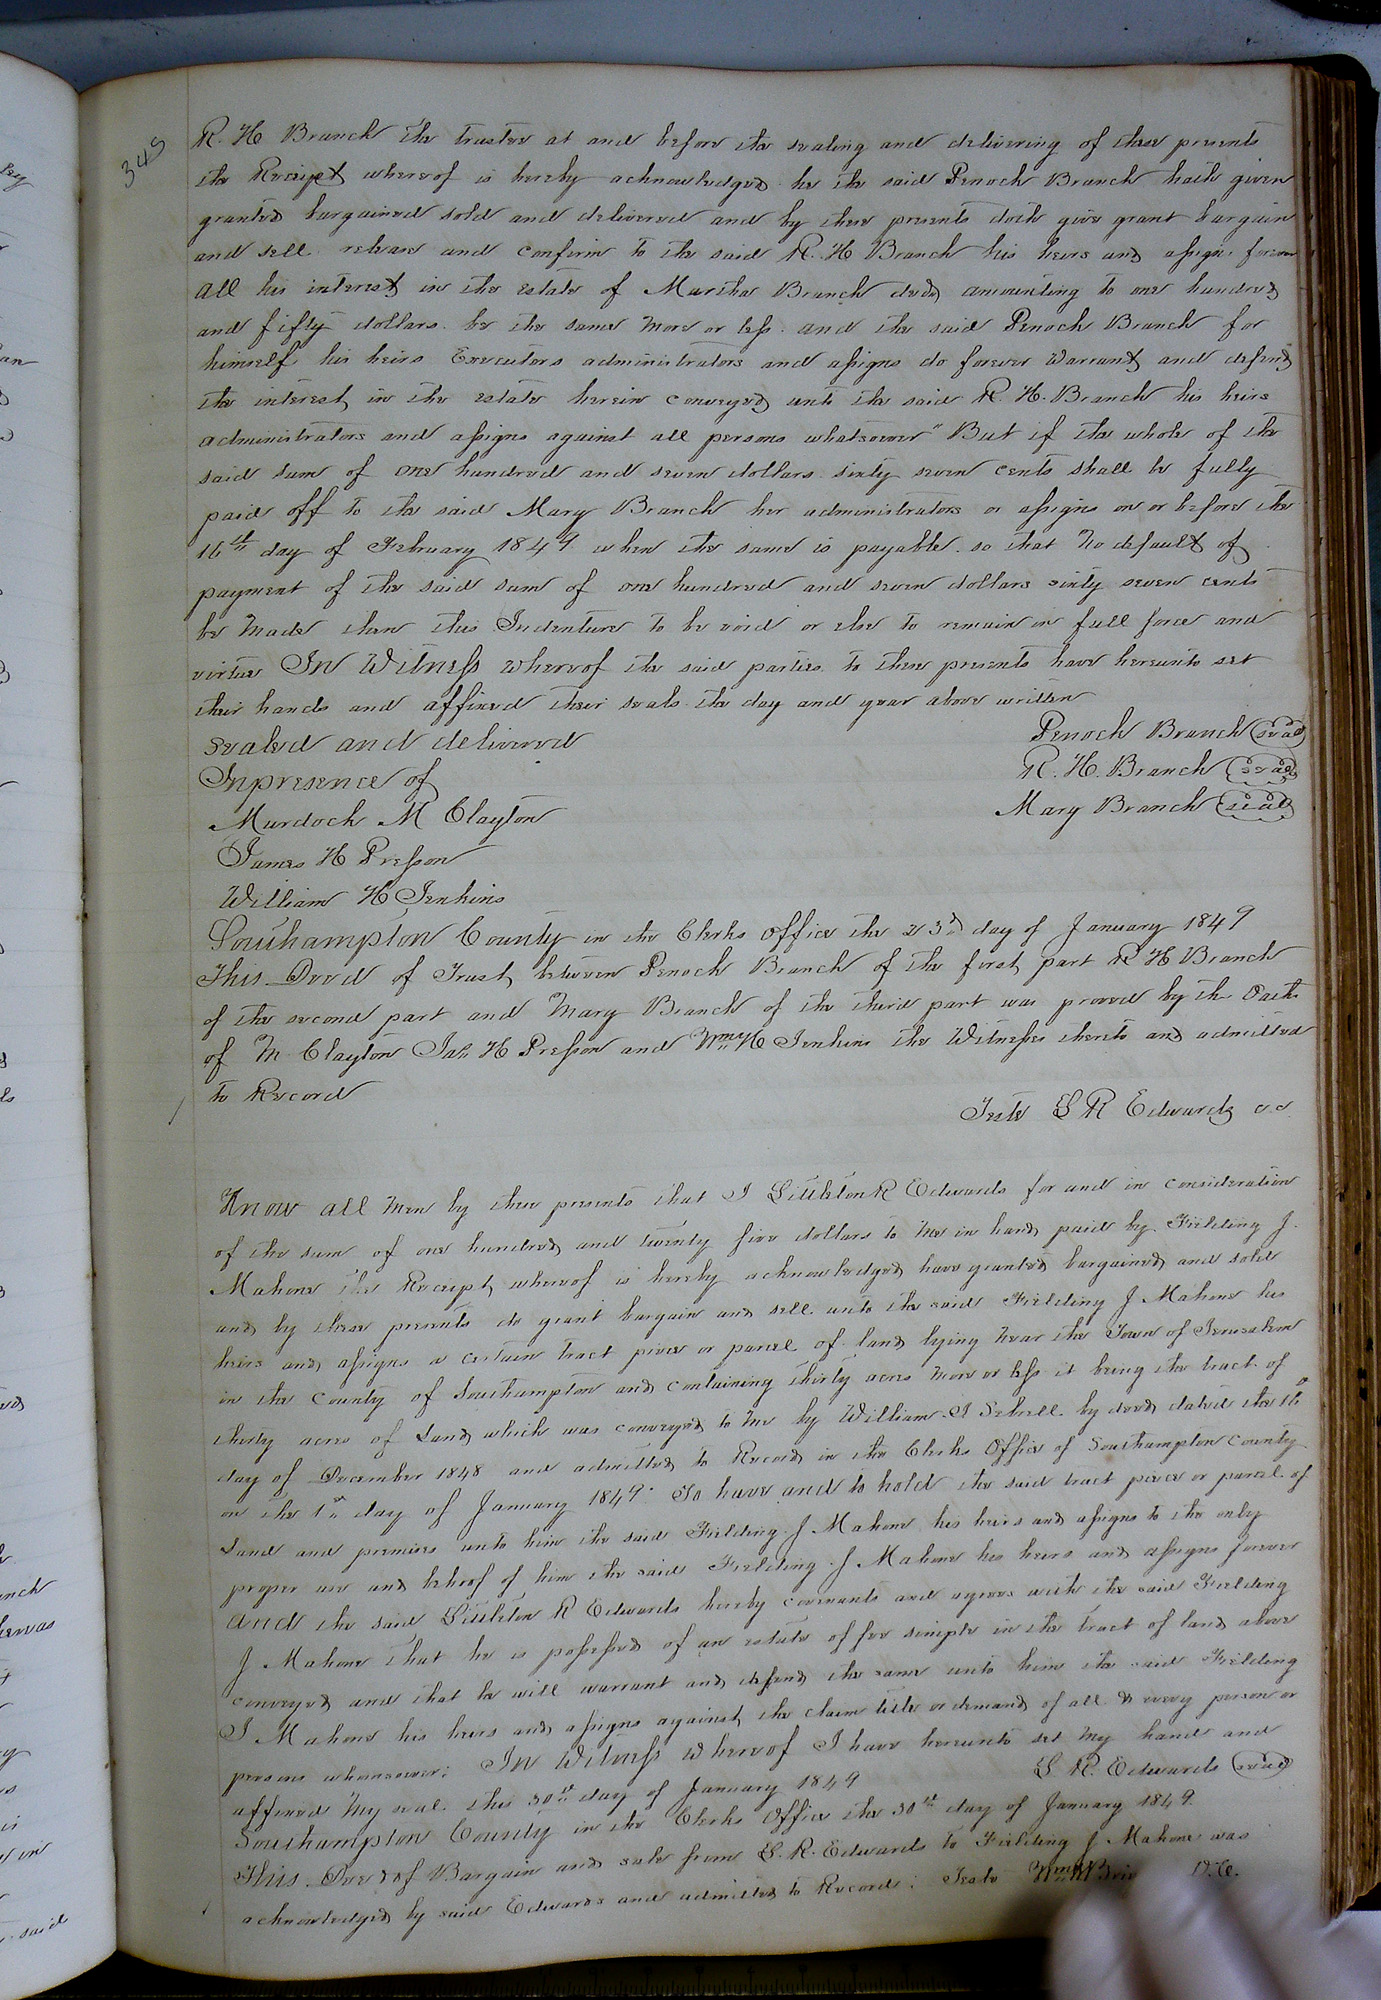 345
R. H Branch the trustee at and before the sealing and delivering of these presents
the Receipt whereof is hereby acknowledged he the said Penoch Branch hath given
granted bargained sold and delivered and by these presents doth give grant bargain
and sell release and confirm to the said R. H Branch his heirs and assigns forever
all his interest in the estate of Martha Branch decd, amounting to one hundred
and fifty dollars be the same more or less and the said Penoch Branch for
himself his heirs Executors administrators and assigns do forever Warrant and defend
the interest in the estate herein conveyed unto the said R. H. Branch his heirs
administrators and assigns against all persons whatsoever" But if the whole of the
said sum of one hundred and seven dollars sixty seven cents shall be fully
paid off to the said Mary Branch her administrators or assigns on or before the
16th day of February 1849 when the same is payable so that No default of
payment of the said sum of one hundred and seven dollars sixty seven cents
be Made then this Indenture to be void or else to remain in full force and
virtue In Witness whereof the said parties to these presents have hereunto set
their hands and affixed their seals the day and year above written
sealed and delivered Penoch Branch (seal)
In presence of R. H. Branch (seal)
Murdoch M Clayton Mary Branch (seal)
James H Presson
William H Jenkins
Southampton County in the Clerks office the 23d day of January 1849
This Deed of Trust, between Penoch Branch of the first part R H Branch
of the second part and Mary Branch of the third part was proved by the Oaths
of M Clayton Jas H Presson and Wm H Jenkins the Witnesses thereto and admitted
to Record
Teste L R Edwards c.c.
Know all Men by these presents that I Littleton R Edwards for and in consideration
of the sum of one hundred and twenty five dollars to Me in hand paid by Fielding J.
Mahone the Receipt whereof is hereby acknowledged have granted bargained and sold
and by these presents do grant bargain and sell unto the said Fielding J Mahone his
heirs and assigns a certain tract piece or parcel of land lying Near the Town of Jerusalem
in the County of Southampton and containing thirty acres More or less it being the tract of
thirty acres of Land which was conveyed to Me by William J Sebrell by deed dated the 1st
day of December 1848 and admitted to Record in the Clerks Office of Southampton County
on the 1st day of January 1849. To have and to hold the said tract piece or parcel of
Land and premises unto him the said Fielding J Mahone his heirs and assigns to the only
proper use and behoof of him the said Fielding J Mahone his heirs and assigns forever
And the said Littleton R Edwards hereby covenants and agrees with the said Fielding
J Mahone that he is possessed of an estate of fee simple in the tract of land above
conveyed and that he will warrant and defend the same unto him the said Fielding
J Mahone his heirs and assigns against the claim title or demand of all & every person or
persons whomsoever: In Witness whereof I have hereunto set my hand and
affixed My seal this 30th day of January 1849 L R. Edwards (seal)
Southampton County in the Clerks Office the 30th day of January 1849.
This Deed of Bargain and sale from L. R. Edwards to Fielding J Mahone was
acknowledged by said Edwards and admitted to Record: Teste Wm D.C.